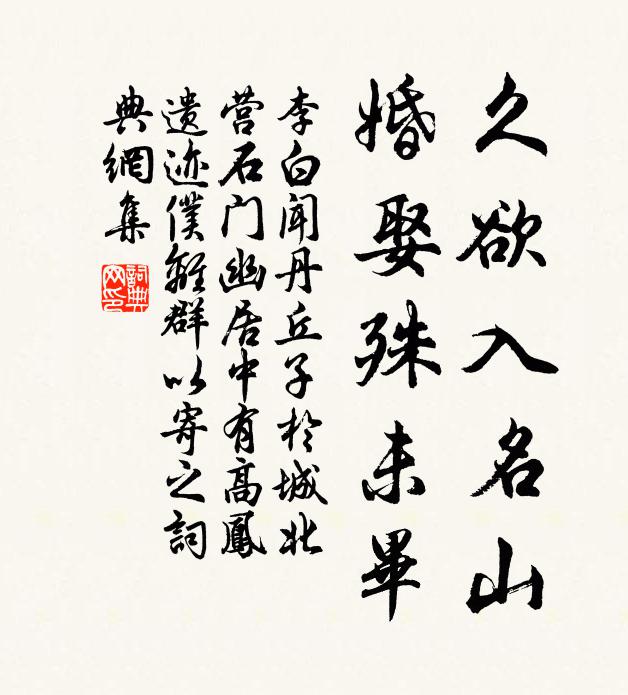 久欲入名山
婚娶殊未畢
李白闻丹丘子於城北
营石门幽居中有高鳳
遗迹僕離群以寄之詞
典網集
詞典网印